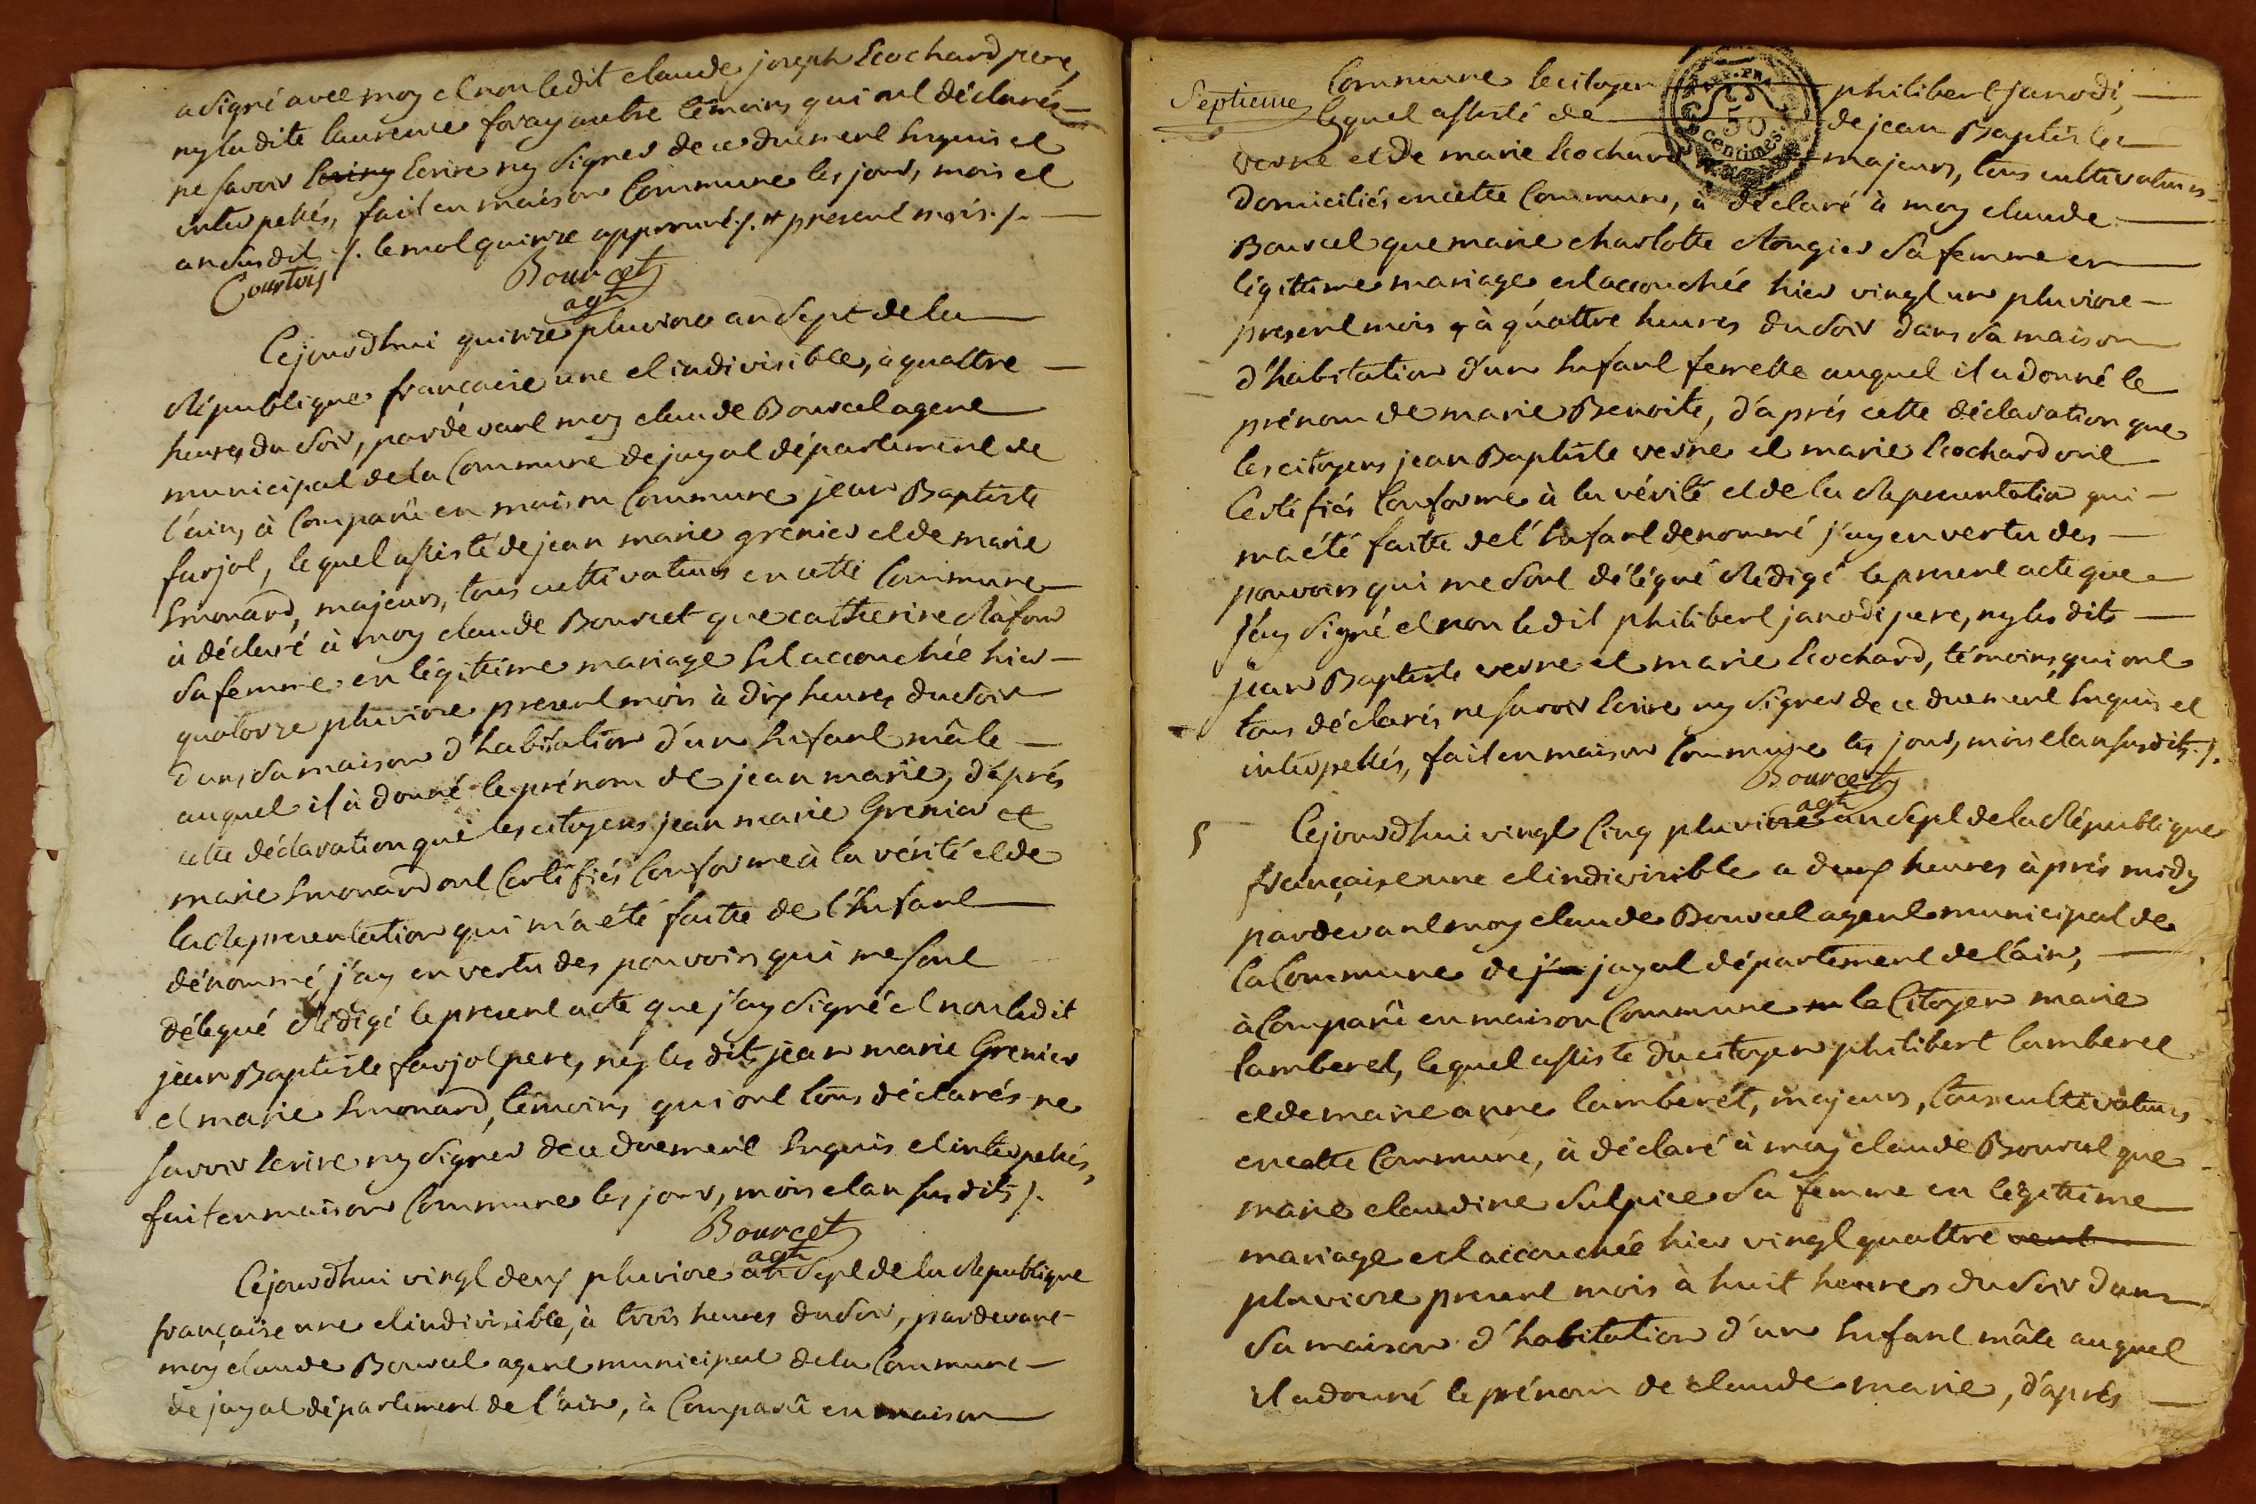 a signé avec moy et non ledit claude joseph Ecochard pere,
ny ladite laurence foray autre témoins qui ont déclarés
ne savoir Ecrire ny signer de ce duement Enquis et
interpellés, fait en maison Commune les jour, mois et
an susdit ./. le mot quinze approuvé ./. # present mois ./.
Courtois Bourcet
agt
Cejourdhui quinze pluviose an sept de la
République française une et indivisible, à quattre
heures du soir, pardévant moy claude Bourcet agent
municipal de la Commune de jayat département de
l'ain, à Comparû en maison Commune jean Baptiste
farjot, lequel assisté de jean marie grenier et de marie
Emonard, majeurs, tous cultivateurs en cette Commune
à déclaré à moy claude Bourcet que catherine Rafour
sa femme en légittime mariage Est accouchée hier
quatorze pluviose present mois à dix heures du soir
dans sa maison d'habitation d'un Enfant mâle
auquel il à donné le prénom de jean marie, d'aprés
cette déclaration que les citoyens jean marie Grenier et
marie Emonard ont Certifiés Conforme à la vérité et de
la Representation qui m'a été faitte de l'Enfant
dénommé j'ay en vertu des pouvoirs qui me sont
délegué Rédigé le present acte que j'ay signé et non ledit
jean Baptiste farjot pere, ny les dits jean marie Grenier
et marie Emonard, témoins qui ont tous déclarés ne
savoir Ecrire ny signer de ce duement Enquis et interpellés,
fait en maison Commune les jour, mois et an susdits ./.
Bourcet
agt
Cejourdhui vingt deux pluviose an sept de la Republique
française une et indivisible, à trois heures du soir, pardevant
moy claude Bourcet agent municipal de la Commune
de jayat département de l'ain, à Comparû en maison
Septieme
Commune le citoyen philibert janodi,
lequel assisté de de jean Baptiste
verne et de marie Ecochard majeurs, tous cultivateurs
domiciliés en cette Commune, à déclaré à moy claude
Bourcet que marie charlotte Rongier sa femme en
légittime mariage est accouchée hier vingt un pluviose
present mois, à quattre heures du soir dans sa maison
d'habitation d'un Enfant femelle auquel il a donné le
prénom de marie Benoite, d'aprés cette déclaration que
les citoyens jean Baptiste verne et marie Ecochard ont
Certifiés Conforme à la vérité et de la Representation qui
m'a été faitte de l'Enfant denommé j'ay en vertu des
pouvoirs qui me sont délégué Rédigé le present acte que
j'ay signé et non le dit philibert janodi pere, ny les dits
jean Baptiste verne et marie Ecochard, témoins qui ont
tous déclarés ne savoir Ecrire ny signer de ce duement Enquis et
interpellés, fait en maison Commune les jour, mois et an susdits ./.
Bourcet
agt
Cejourdhui vingt Cinq pluviose an sept de la République
française une et indivisible a deux heures après midy
pardevant moy claude Bourcet agent municipal de
la Commune de jayat département de l'ain,
à Comparû en maison Commune le Citoyen marie
lamberet, lequel assisté du citoyen philibert lamberet
et de marie anne lamberet, majeurs, tous cultivateurs
en cette Commune, à déclaré à moy claude Bourcet que
marie claudine Sulpice sa femme en légittime
mariage est accouchée hier vingt quattre vent
pluviose present mois à huit heures du soir dans
sa maison d'habitation d'un Enfant mâle auquel
il a donné le prénom de claude marie, d'aprés
50
centimes.